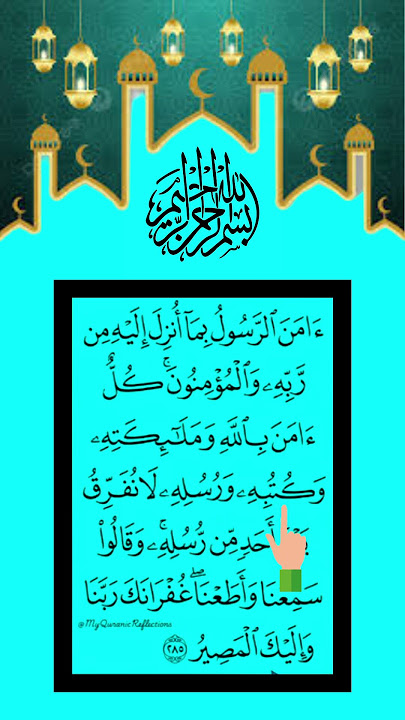 بسم الله الرحمن الرحيم
ءَامَنَ ٱلرَّسُولُ بِمَآ أُنزِلَ إِلَيْهِ مِن
رَّبِّهِۦ وَٱلْمُؤْمِنُونَۚ كُلٌّ
ءَامَنَ بِٱللَّهِ وَمَلَٰٓئِكَتِهِۦ
وَكُتُبِهِۦ وَرُسُلِهِۦ لَا نُفَرِّقُ
أَحَدٍ مِّن رُّسُلِهِۦۚ وَقَالُوا۟
سَمِعْنَا وَأَطَعْنَاۖ غُفْرَانَكَ رَبَّنَا
وَإِلَيْكَ ٱلْمَصِيرُ ٢٨٥
@MyQuranicReflections